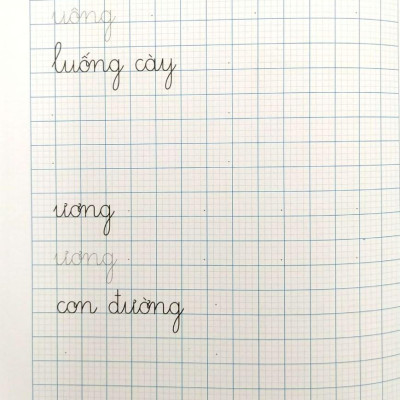 uông
luống cày
ương
ương
con đường